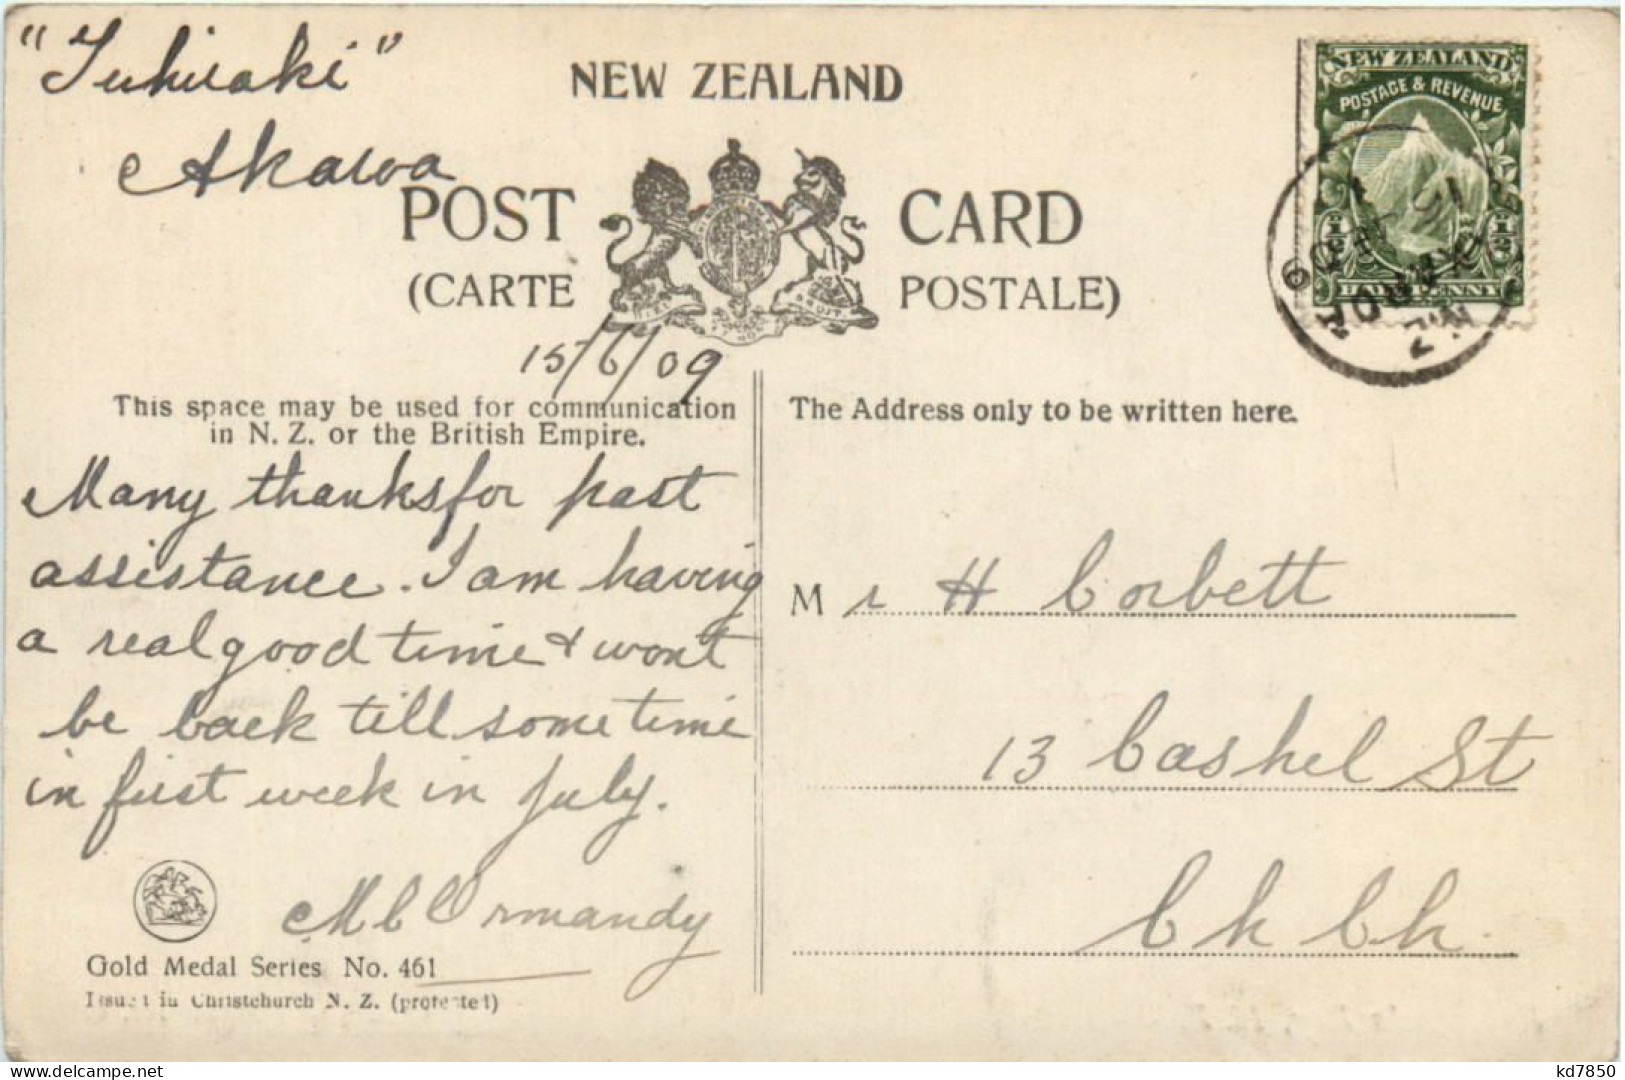 "Tuhiraki"
Akaroa
NEW ZEALAND
POST CARD
(CARTE POSTALE)
NEW ZEALAND
POSTAGE & REVENUE
HALF PENNY
15/6/09
This space may be used for communication
in N. Z. or the British Empire.
Many thanks for past
assistance. I am having
a real good time & wont
be back till some time
in first week in July.
M C Ormandy
Gold Medal Series No. 461
Issued in Christchurch N. Z. (protected)
The Address only to be written here.
Mr H Corbett
13 Cashel St
Ch Ch.
kd7850